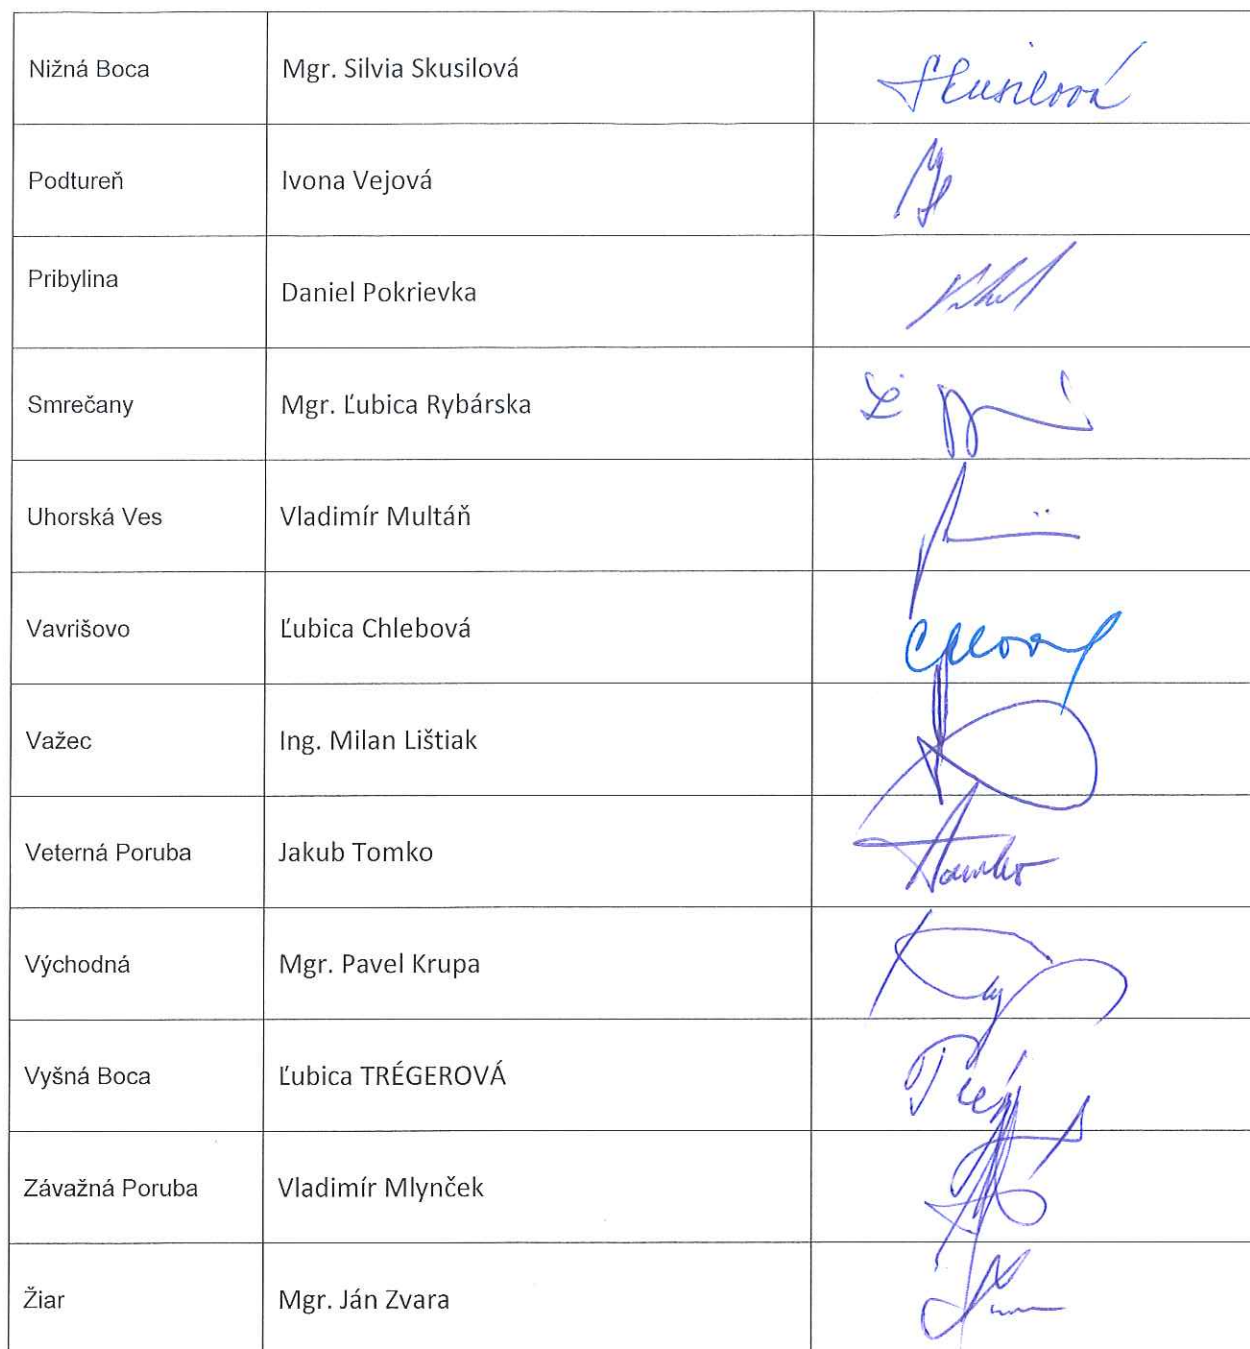 Nižná Boca Mgr. Silvia Skusilová Skusilová
Podtureň Ivona Vejová
Pribylina Daniel Pokrievka
Smrečany Mgr. Ľubica Rybárska
Uhorská Ves Vladimír Multáň
Vavrišovo Ľubica Chlebová
Važec Ing. Milan Lištiak
Veterná Poruba Jakub Tomko Tomko
Východná Mgr. Pavel Krupa
Vyšná Boca Ľubica TRÉGEROVÁ
Závažná Poruba Vladimír Mlynček
Žiar Mgr. Ján Zvara